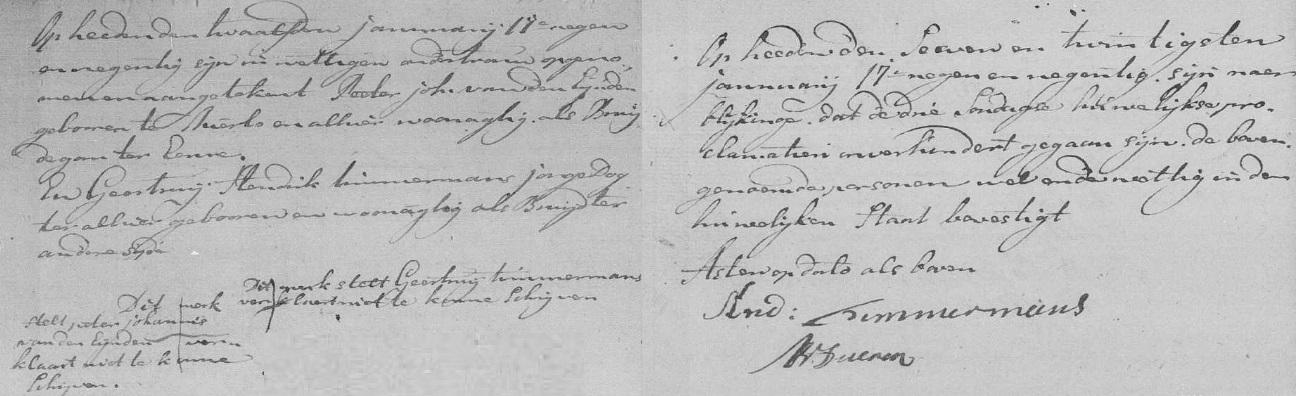 Op heeden den twaalfden januuarij 17e negen
en negentig sijn in wettigen ondertrouw opgeno,
men en aangetekent Peeter joh: van den Eijnden
gebooren te Mierlo en alhier woonagtig. als Bruij
degom ter Eenre.
En Geertruij Hendrik timmermans jonge Dog
ter alhier gebooren en woonagtig als Bruijd ter
andere sijde
Dit merk stelt Geertruij timmermans
verklaert niet te kenne Schijven
Dit merk
stelt peter johannis
van den Eijnden verr
klaart niet te kenne
Schijven.
Op heeden den Seeven en twintigsten
januuarij 17e negen en negentig. sijn naer
blijkinge. dat de drie Sondagse huwelijkse pro.
clamatien onverhindert gegaan sijn. de boven.
genoemde personen wel ende wettig in den
huwelijken Staat bevestigt
Acten op dato als boven
And: Timmermans